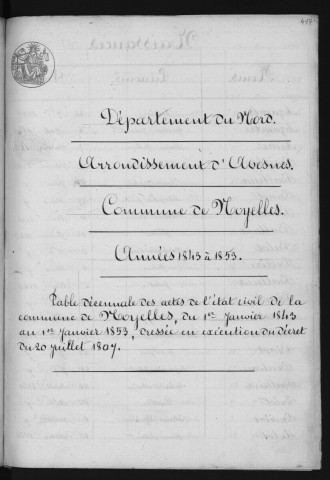 417
Département du Nord.
Arrondissement d'Avesnes.
Commune de Noyelles.
Années 1843 à 1853.
Table décennale des actes de l'état civil de la
commune de Noyelles, du 1er Janvier 1843
au 1er Janvier 1853, dressée en exécution du décret
du 20 juillet 1807.